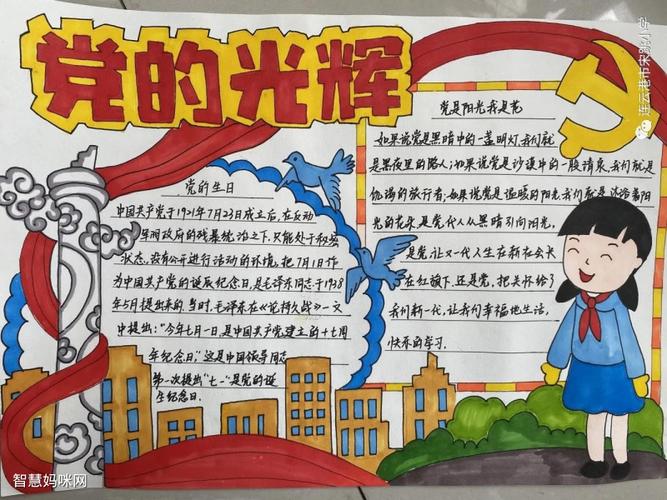 党的光辉
党的生日
中国共产党于1921年7月23日成立后,在反动
军阀政府的残暴统治之下,只能处于秘密
状态,没有公开进行活动的环境,把7月1日作
为中国共产党的诞辰纪念日,是毛泽东同志于1938
年5月提出来的.当时,毛泽东在《论持久战》一文
中提出:"今年七月一日,是中国共产党建立的十七周
年纪念日."这是中国领导同志
第一次提出"七一"是党的诞
生纪念日.
党是阳光我是花
如果说党是黑暗中的一盏明灯,我们就
是黑夜里的路人;如果说党是沙漠中的一股清泉,我们就是
饥渴的旅行者;如果说党是温暖的阳光,我们就是沐浴着阳
光的花朵,是党,代人从黑暗引向阳光,
是党,让一代人生在新在长
在红旗下,还是党,把关怀给了
我们新一代,让我们幸福地生活,
快乐的学习.
连云港市宋跳小学
智慧妈咪网